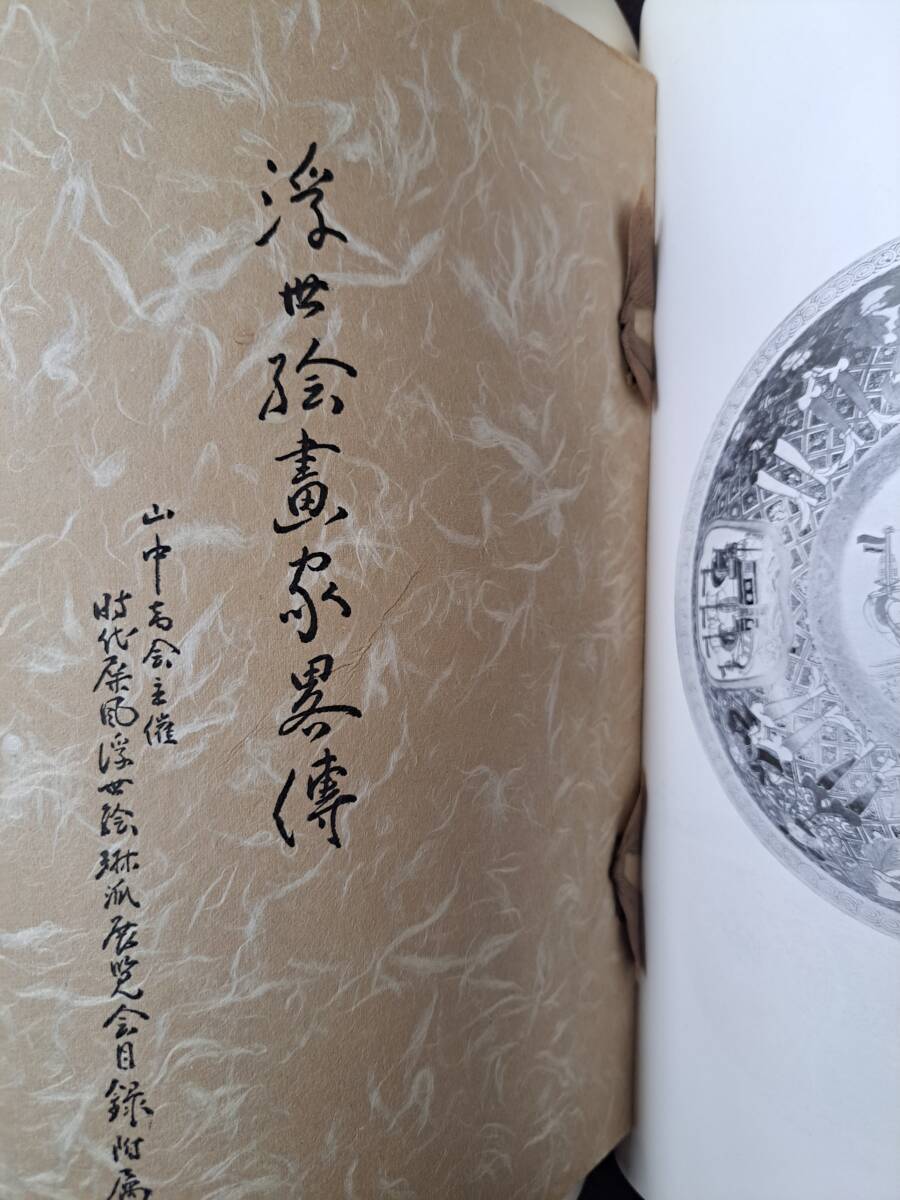 浮世絵畫家畧傳
山中商会主催
時代屏風浮世絵琳派展覧会目録附属